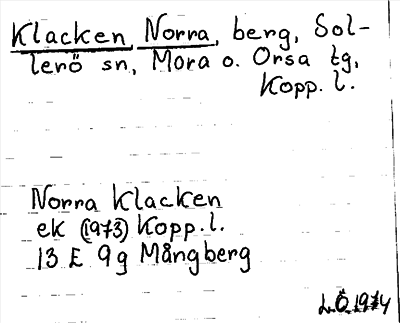 Klacken, Norra, berg, Sol-
lerö sn, Mora o. Orsa tg,
Kopp. l.
Norra Klacken
ek (1973) Kopp. l.
13 E 9 g Mångberg
L.Ö. 1974